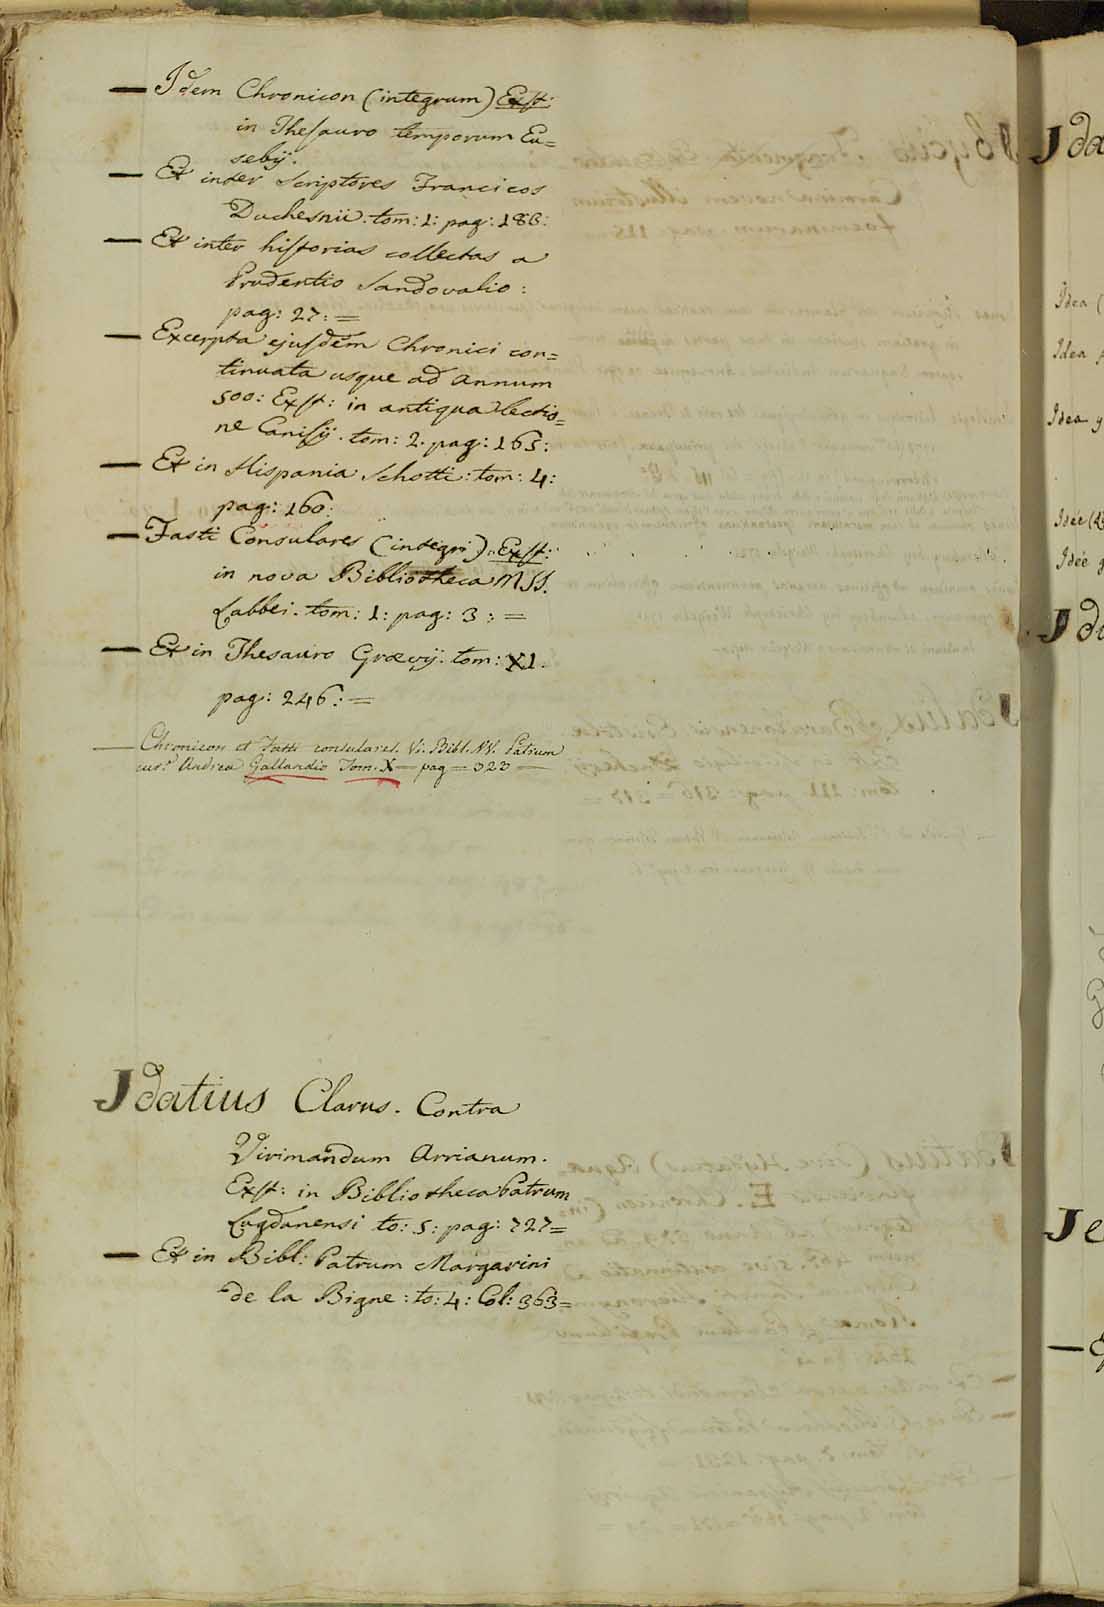 — Idem Chronicon (integrum) Exst:
in Thesauro temporum Eu=
sebij.
— Et inter Scriptores Francicos
Duchesnii: tom: 1: pag: 186:
— Et inter historias collectas a
Prudentio Sandovalio:
pag: 27: =
— Excerpta ejusdem Chronici con=
tinuata usque ad annum
500: Exst: in antiqua lectio=
ne Canisij. tom: 2. pag: 165:
— Et in Hispania Schotti: tom: 4:
pag: 160:
— Fasti Consulares (integri). Exst:
in nova Bibliotheca MSS.
Labbei. tom: 1: pag: 3: =
— Et in Thesauro Grævij: tom: XI.
pag: 246: =
— Chronicon et Fasti consulares. Vi: Bibl. VV. Patrum
cur.e Andrea Gallandio Tom. X — pag = 323 —
Idatius Clarus. Contra
Virimandum Arrianum.
Exst: in Bibliotheca Patrum
Lugdunensi to: 5: pag: 727=
— Et in Bibl: Patrum Margarini
de la Bigne: to: 4: Col: 363=
Ida
Idea (
Idea
Idea y
Idée (
Idée
Id
Je
—